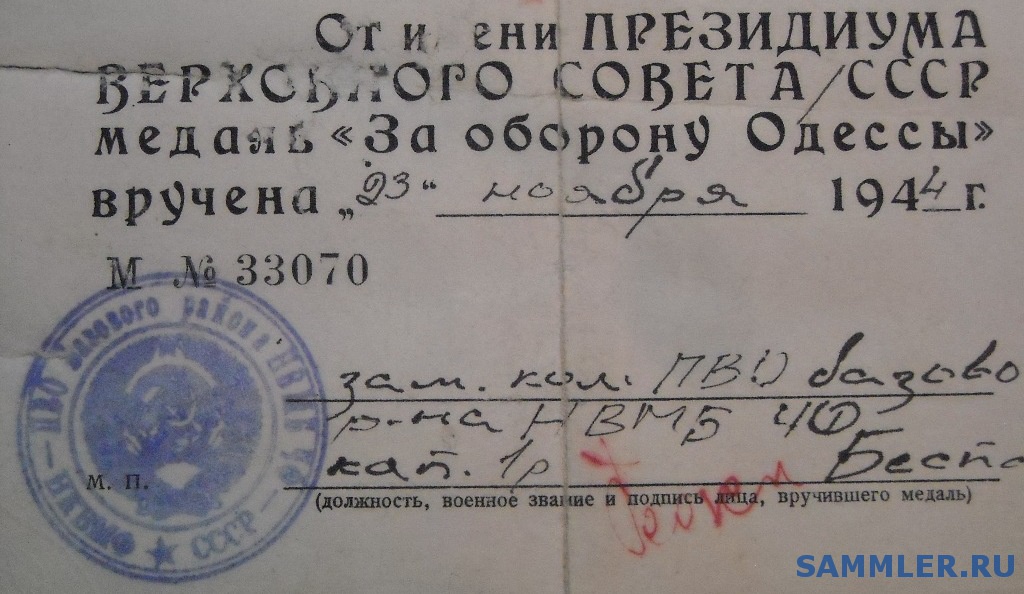 От имени ПРЕЗИДИУМА
ВЕРХОВНОГО СОВЕТА СССР
медаль «За оборону Одессы»
вручена „23“ ноября 1944 г.
М № 33070
ПВО Базового района НВМБ ЧФ
НКВМФ ★ СССР
зам. ком. ПВО базово
р-на НВМБ ЧФ
кап. 1р Беспа
М. П.
(должность, военное звание и подпись лица, вручившего медаль)
SAMMLER.RU